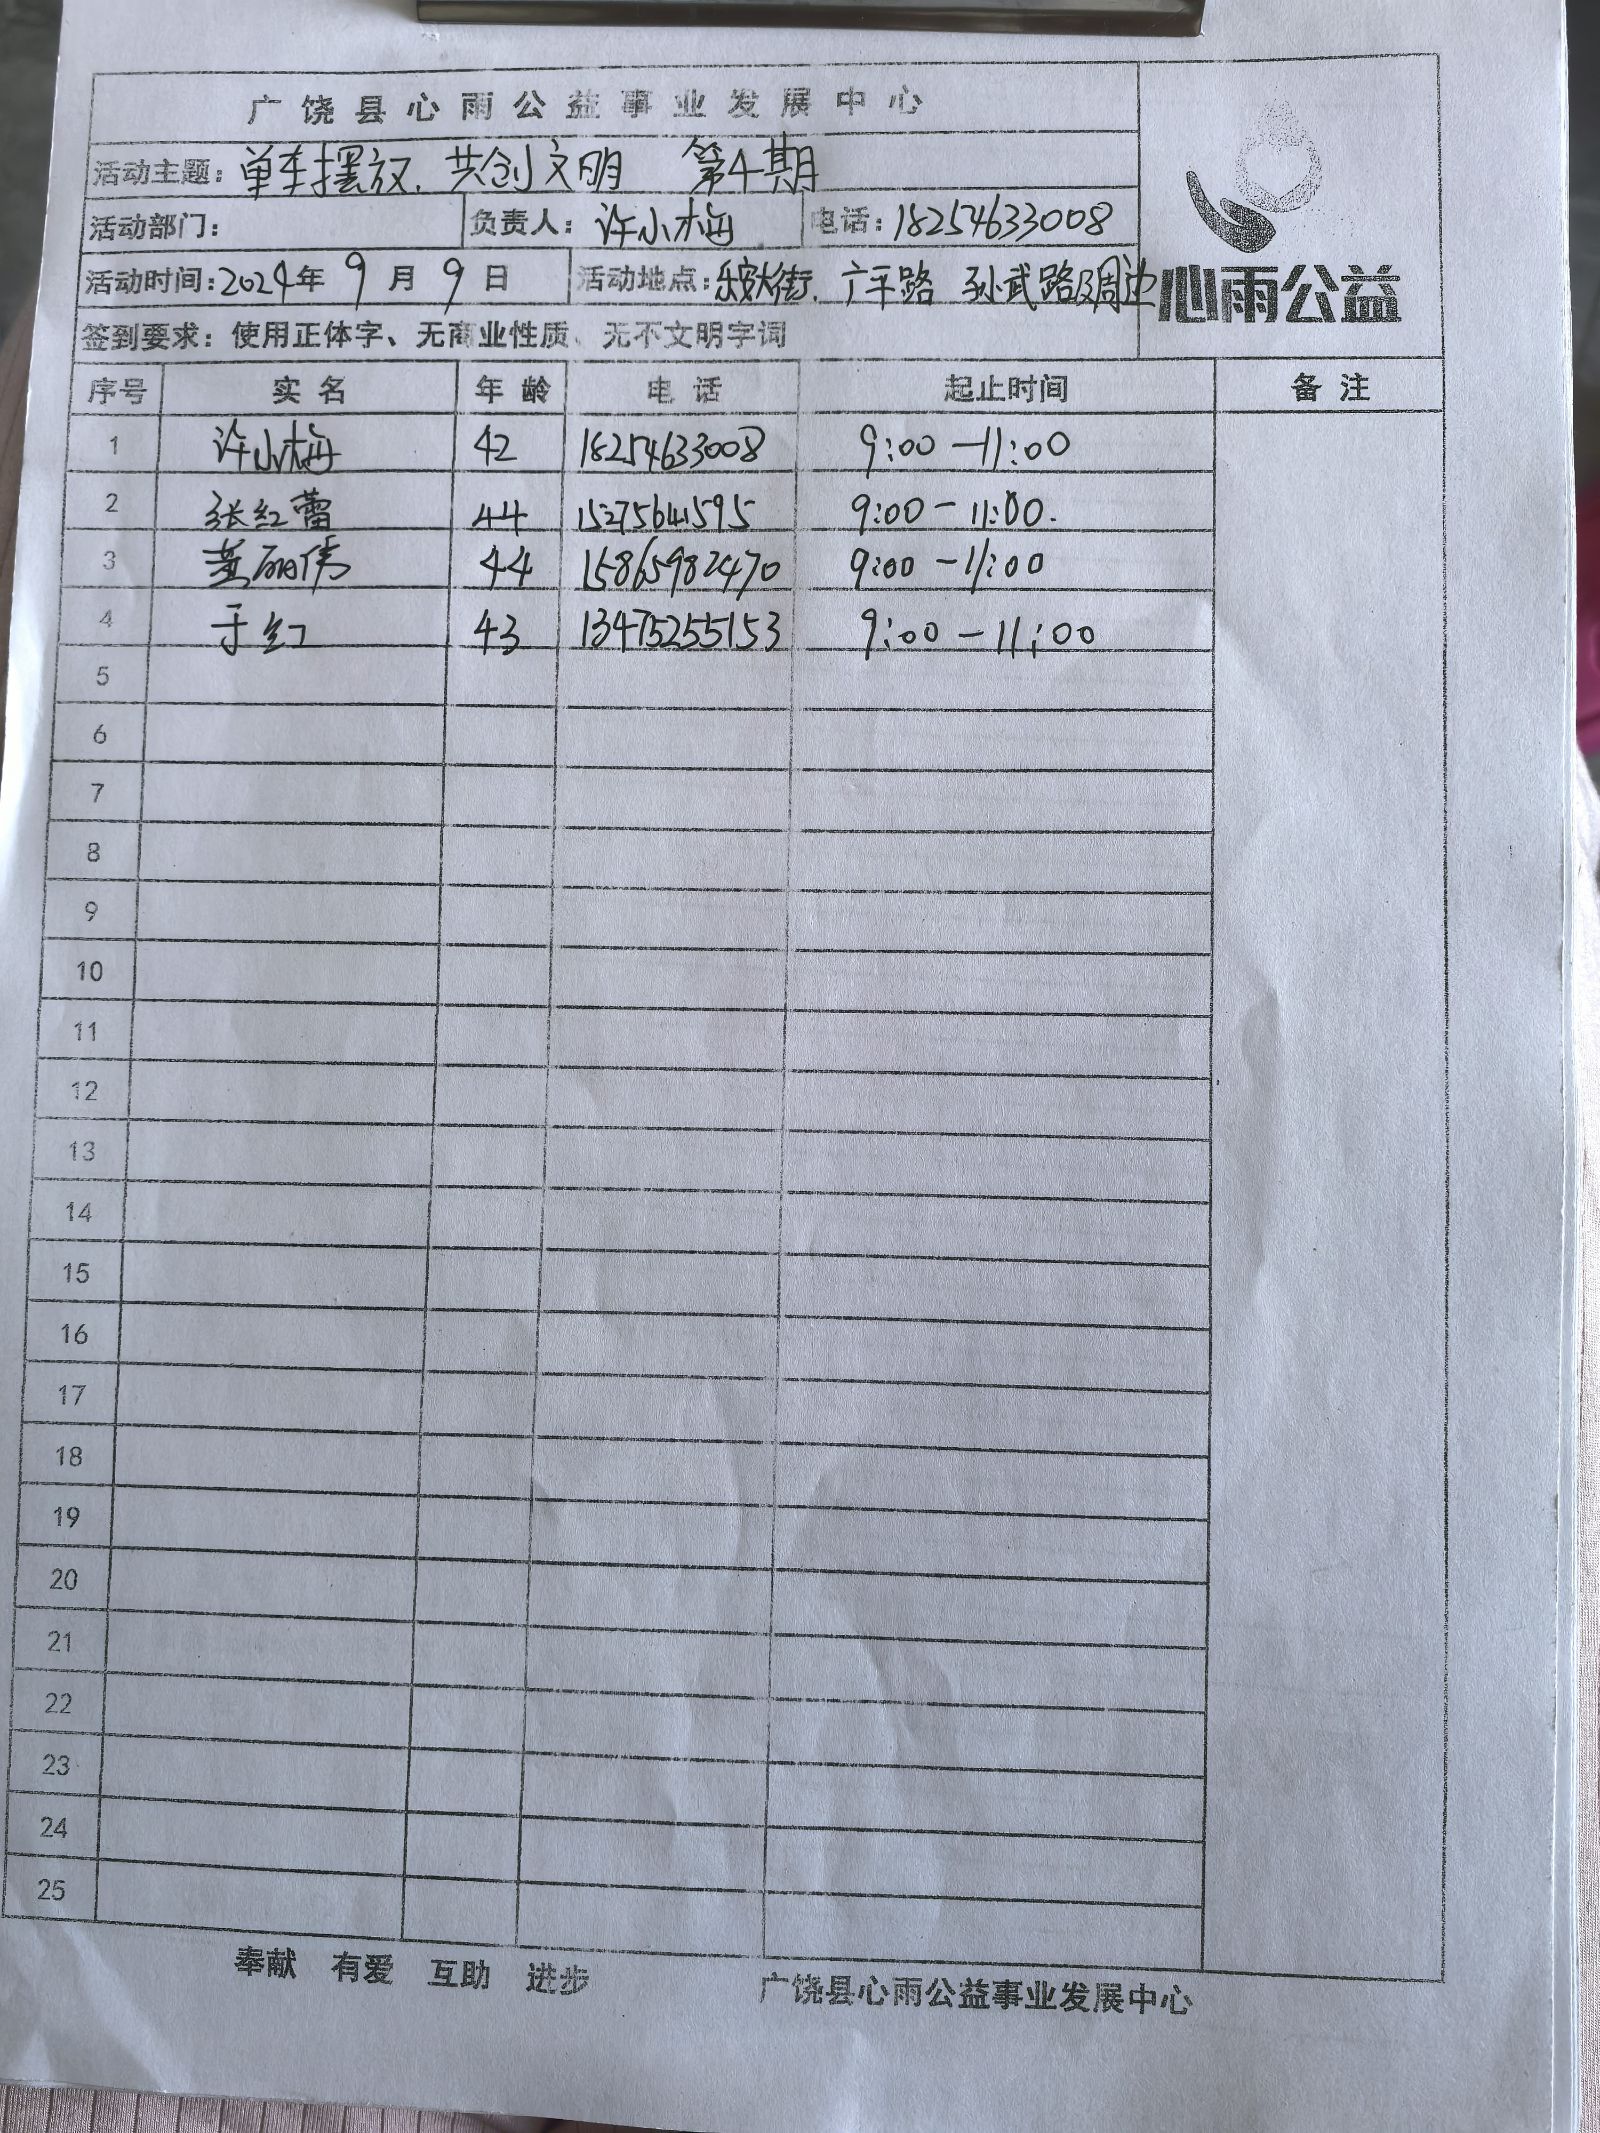 广饶县心雨公益事业发展中心
活动主题：单车摆放、共创文明 第4期
活动部门： 负责人：许小梅 电话：18254633008
活动时间：2024年9月9日 活动地点：乐安大街、广平路 孙武路及周边
心雨公益
签到要求：使用正体字、无商业性质、无不文明字词
序号 实名 年龄 电话 起止时间 备注
1 许小梅 42 18254633008 9:00-11:00
2 张红蕾 44 15275641595 9:00-11:00.
3 黄丽伟 44 15865982470 9:00-11:00
4 于红 43 13475255153 9:00-11:00
5
6
7
8
9
10
11
12
13
14
15
16
17
18
19
20
21
22
23
24
25
奉献 有爱 互助 进步 广饶县心雨公益事业发展中心